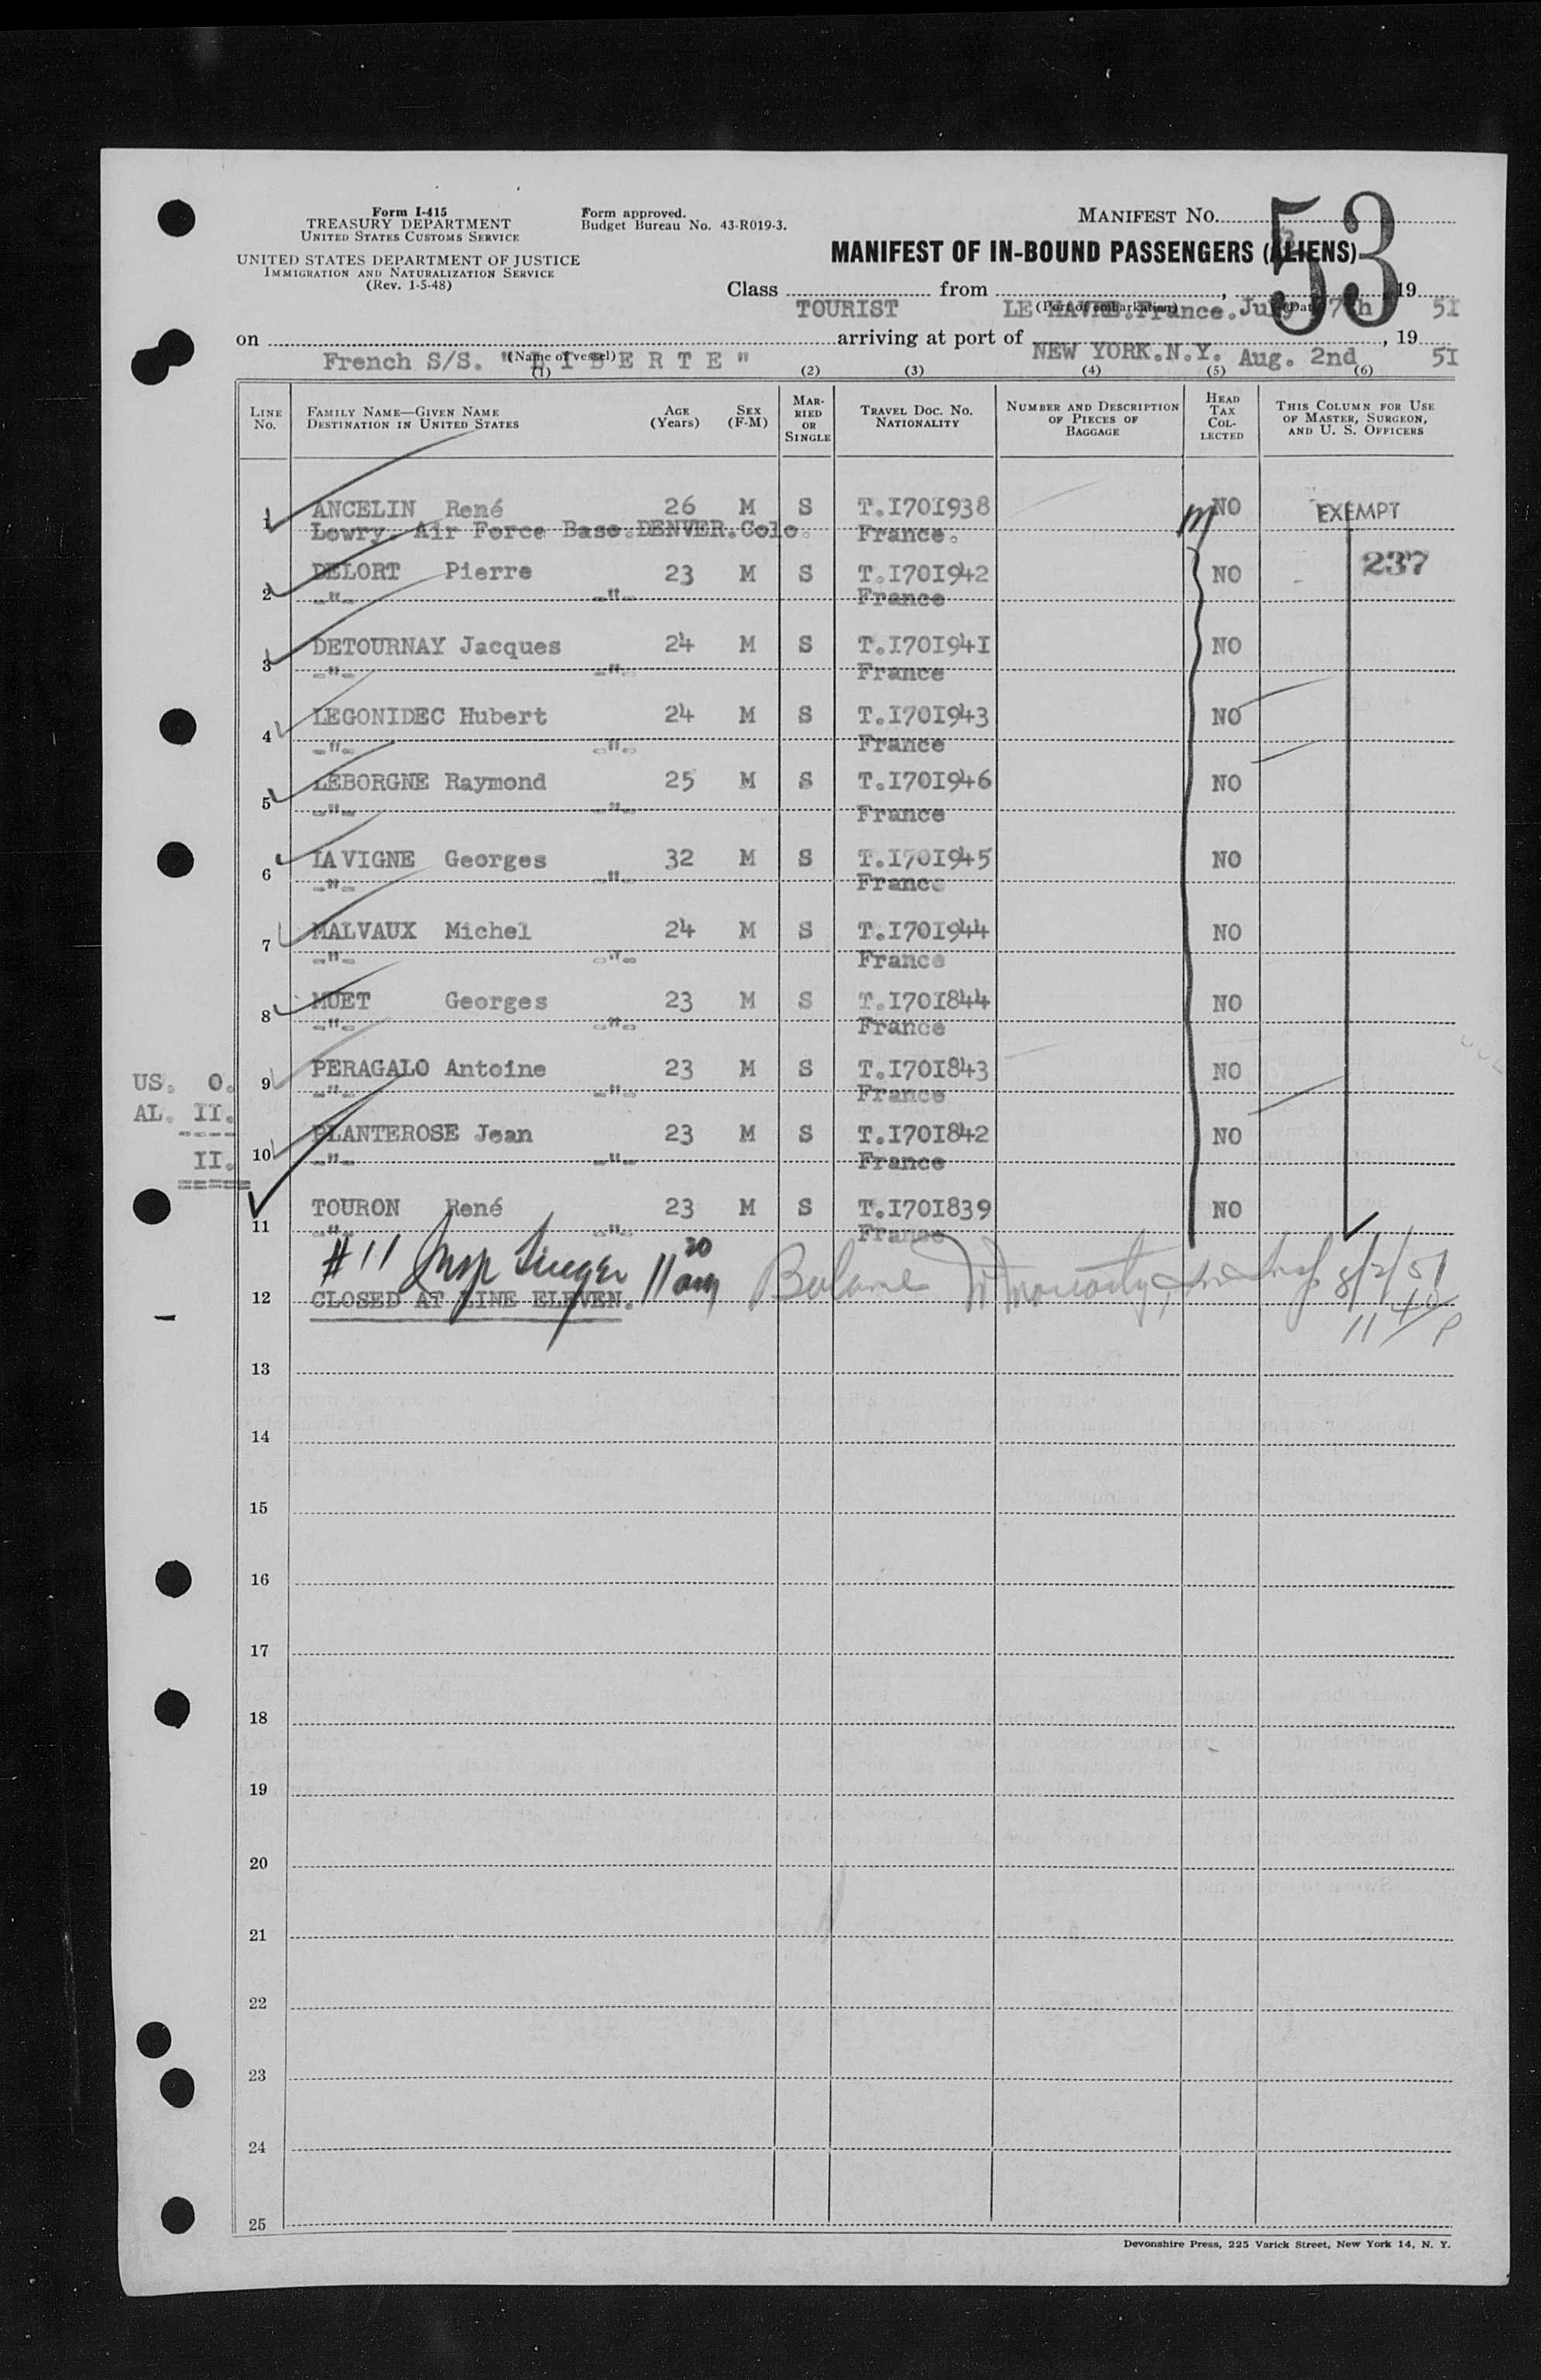 Form I-415
TREASURY DEPARTMENT
UNITED STATES CUSTOMS SERVICE
UNITED STATES DEPARTMENT OF JUSTICE
IMMIGRATION AND NATURALIZATION SERVICE
(Rev. 1-5-48)
Form approved.
Budget Bureau No. 43-R019-3.
MANIFEST NO. 53
MANIFEST OF IN-BOUND PASSENGERS (ALIENS)
Class TOURIST from LE HAVRE.France. 19 51
(Port of embarkation) (Date)
on French S/S. "L I B E R T E" arriving at port of NEW YORK.N.Y. Aug. 2nd, 19 51
(Name of vessel)
(1) (2) (3) (4) (5) (6)
LINE No. FAMILY NAME—GIVEN NAME DESTINATION IN UNITED STATES AGE (Years) SEX (F-M) MARRIED OR SINGLE TRAVEL DOC. NO. NATIONALITY NUMBER AND DESCRIPTION OF PIECES OF BAGGAGE HEAD TAX COLLECTED THIS COLUMN FOR USE OF MASTER, SURGEON, AND U. S. OFFICERS
1 ANCELIN René 26 M S T.I701938 NO EXEMPT
Lowry. Air Force Base.DENVER.Colo. France.
2 DELORT Pierre 23 M S T.I701942 NO 237
-"- -"- France
3 DETOURNAY Jacques 24 M S T.I701941 NO
-"- -"- France
4 LEGONIDEC Hubert 24 M S T.I701943 NO
-"- -"- France
5 LEBORGNE Raymond 25 M S T.I701946 NO
-"- -"- France
6 LAVIGNE Georges 32 M S T.I701945 NO
-"- -"- France
7 MALVAUX Michel 24 M S T.I701944 NO
-"- -"- France
8 MUET Georges 23 M S T.I701844 NO
-"- -"- France
US. 0.
9 PERAGALO Antoine 23 M S T.I701843 NO
-"- -"- France
AL. II.
10 PLANTEROSE Jean 23 M S T.I701842 NO
-"- -"- France
II.
11 TOURON René 23 M S T.I701839 NO
-"- -"- France
#11 Insp 11 20 am 8/2/51
12 CLOSED AT LINE ELEVEN.
11 40 P
13
14
15
16
17
18
19
20
21
22
23
24
25
Devonshire Press, 225 Varick Street, New York 14, N. Y.